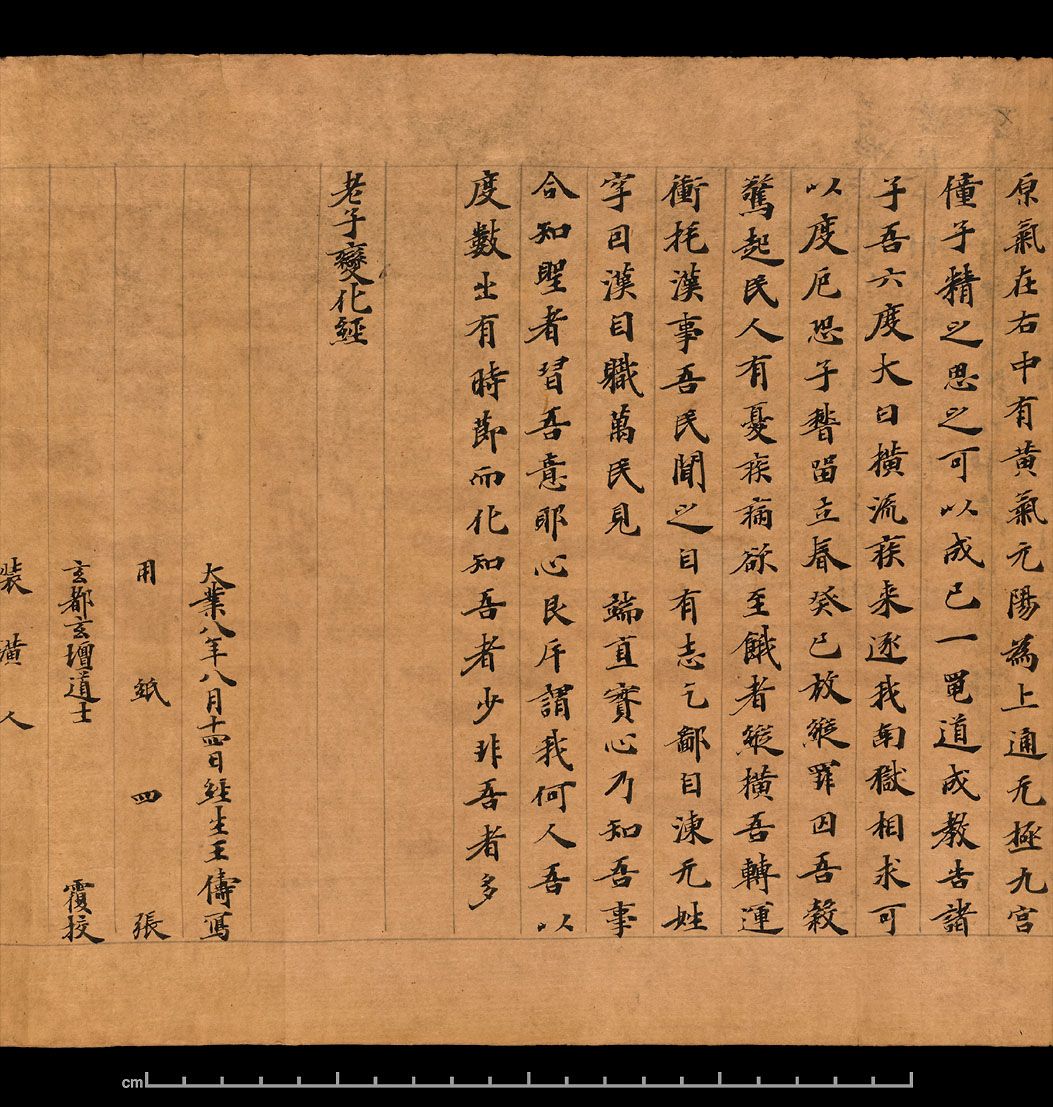 原氣在右中有黃氣元陽為上通无極九宮
僮子精之思之可以成己一黽道成教告諸
子吾六度大曰橫流疾来逐我南獄相求可
以度厄恐子稽留立春癸巳放縱罪囚吾穀
驚起民人有憂疾病欲至餓者縱橫吾轉運
衝托漢事吾民聞之自有志乞鄙自涷无姓
字因漢自職萬民見 端直實心乃知吾事
合知聖者習吾意耶心艮斥謂我何人吾以
度數出有時節而化知吾者少非吾者多
老子變化經
大業八年八月十四日經生王儔寫
用紙四張
玄都玄壇道士 覆校
裝潢人